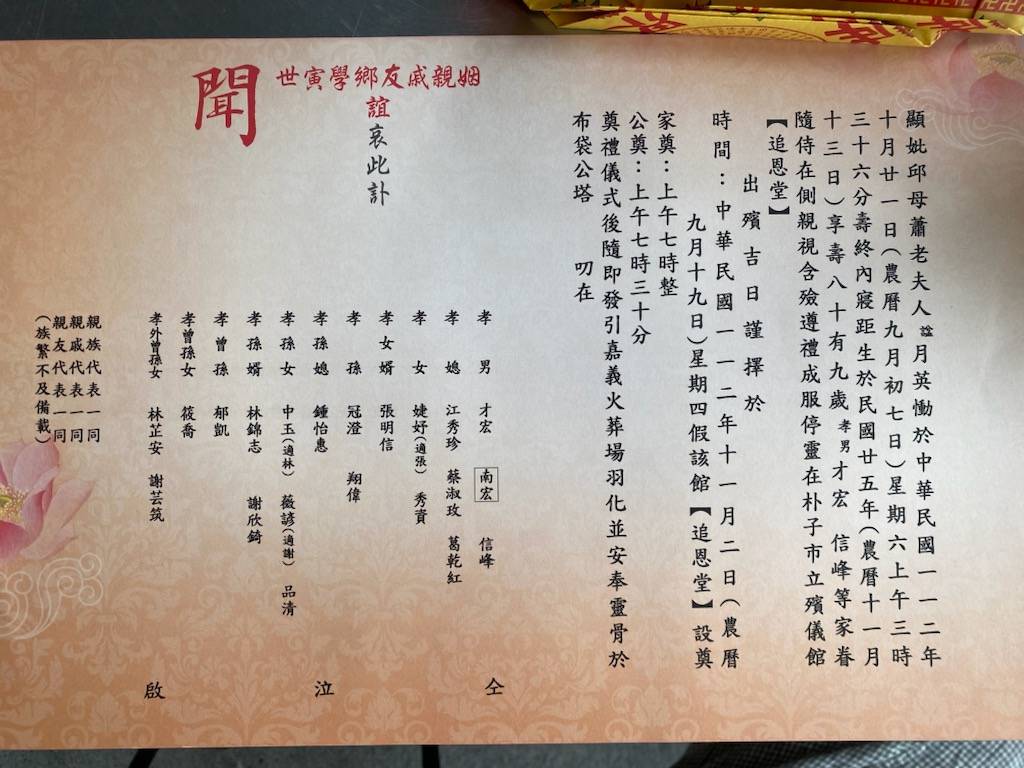 顯妣邱母蕭老夫人諡月英慟於中華民國一一二年
十月廿一日(農曆九月初七日)星期六上午三時
三十六分壽終內寢距生於民國廿五年(農曆十一月
十三日)享壽八十有九歲孝男才宏 信峰等家眷
隨侍在側親視含殮遵禮成服停靈在朴子市立殯儀館
【追恩堂】
出殯吉日謹擇於
時間:中華民國一一二年十一月二日(農曆
九月十九日)星期四假該館【追恩堂】設奠
家奠:上午七時整
公奠:上午七時三十分
奠禮儀式後隨即發引嘉義火葬場羽化並安奉靈骨於
布袋公塔 叨在
姻親戚友鄉學寅世
誼
哀此訃
聞
孝男 才宏 南宏 信峰
孝媳 江秀珍 蔡淑玫 葛乾紅
孝女 婕妤(適張) 秀資
孝女婿 張明信
孝孫 冠澄 翔偉
孝孫媳 鍾怡惠
孝孫女 中玉(適林) 薇諺(適謝) 品清
孝孫婿 林錦志 謝欣錡
孝曾孫 郁凱
孝曾孫女 筱喬
孝外曾孫女 林芷安 謝芸筑
仝
泣
啟
親族代表一同
親戚代表一同
親友代表一同
(族繁不及備載)